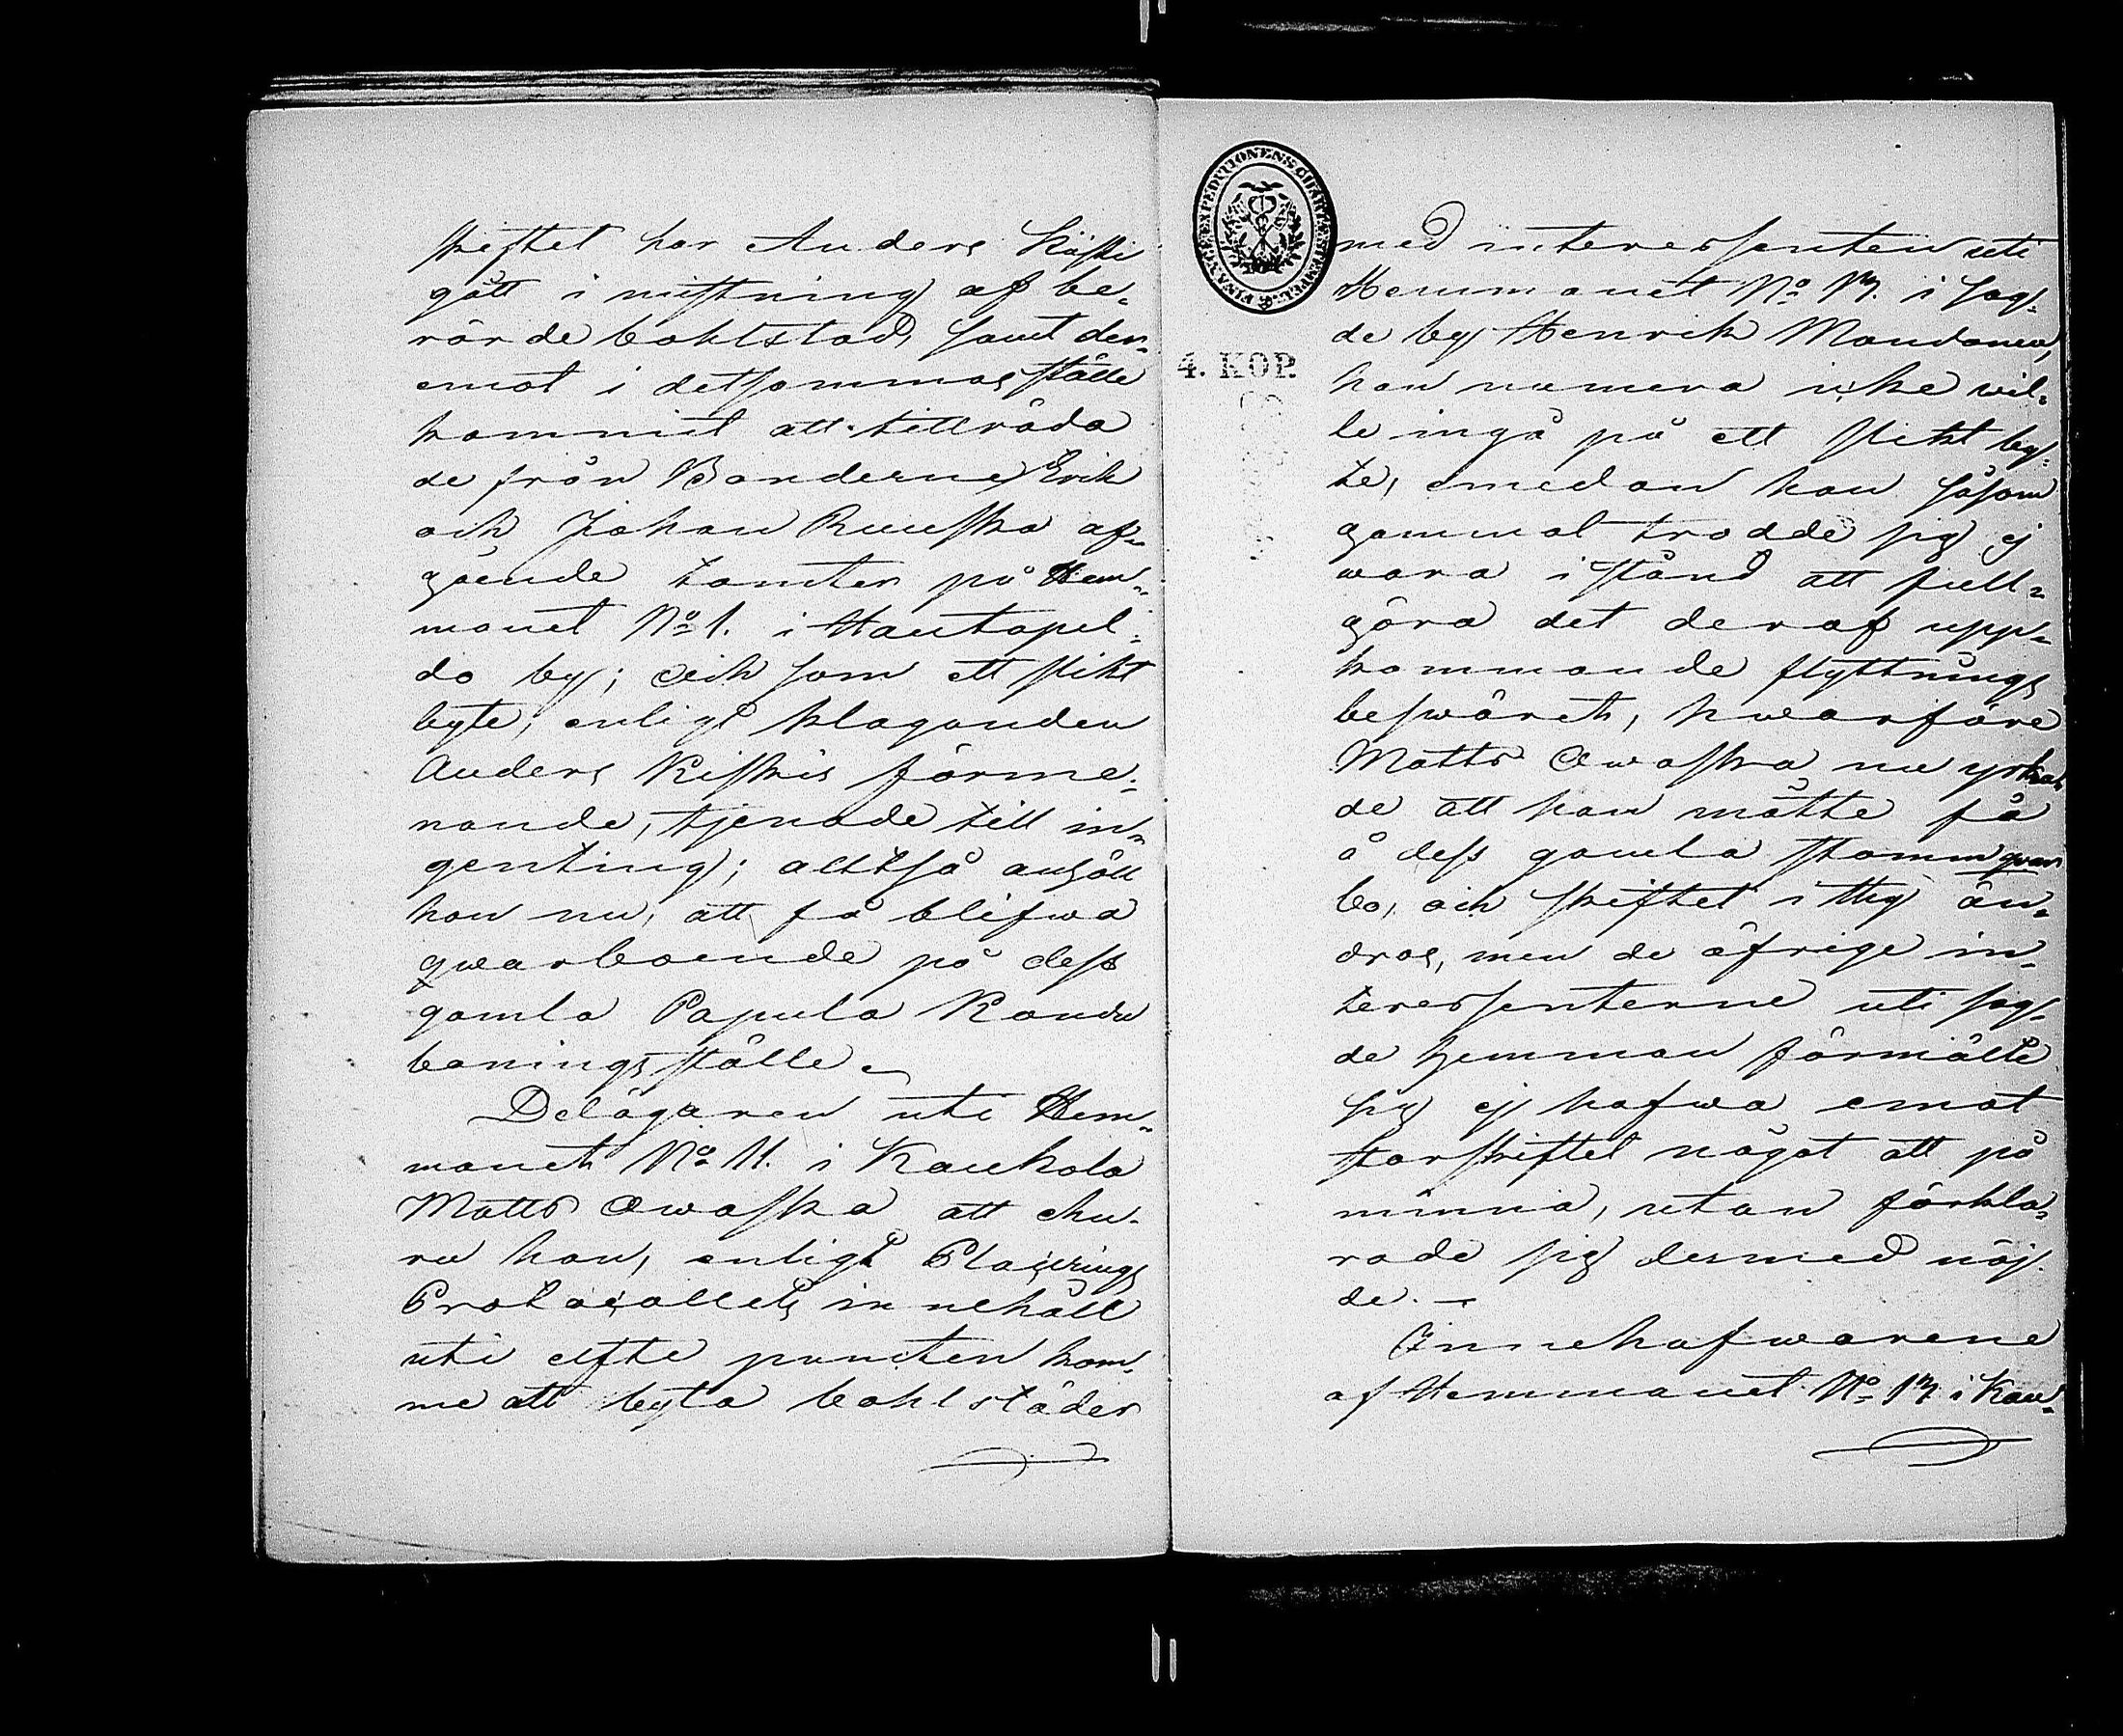 skiftet har Anders Kiiski
gått i mistning af be-
rörde bohlstad, samt der-
emot i detsammas ställe
kommit att tillträda
de från Bönderne Erik
och Johan Ruuska af-
gående tomter på Hem-
manet No 1. i Hautapel-
do by; och som ett slikt
byte, enligt klaganden
Anders Kiiskis förme-
nande, tjenade till in-
genting; alltså anhöll
han nu, att få blifwa
qwarboende på dess
gamla Papula Kandu
boningsställe.
Delägaren uti Hem-
manet No 11. i Kaukola
Matts Awaska att ehu-
ru han, enligt Blacerings
Protocollets innehåll
uti elfte puncten kom-
me att byta bohlstäder
FINANCE EXPEDITIONENS CHARTÆ STEMPEL
4. KOP.
med interessenten uti
Hemmanet No 17. i sag-
de by Henrik Mondonen,
han numera icke wil-
le ingå på ett slikt by-
te, emedan han såsom
gammal trodde sig ej
wara i stånd att full-
göra det deraf upp-
kommande flyttnings
beswäret, hwarföre
Matts Awaska nu yrkat-
de att han måtte få
å dess gamla stomm qvar
bo, och skiftet i thy än-
dras, men de öfrige in-
teressenterne uti sag-
de hemman förmälte
sig ej hafwa emot
storskiftet något att på
minna, utan förkla-
rade sig dermed nöj-
de. —
Innehafwarene
af Hemmanet No 17 i Kau-